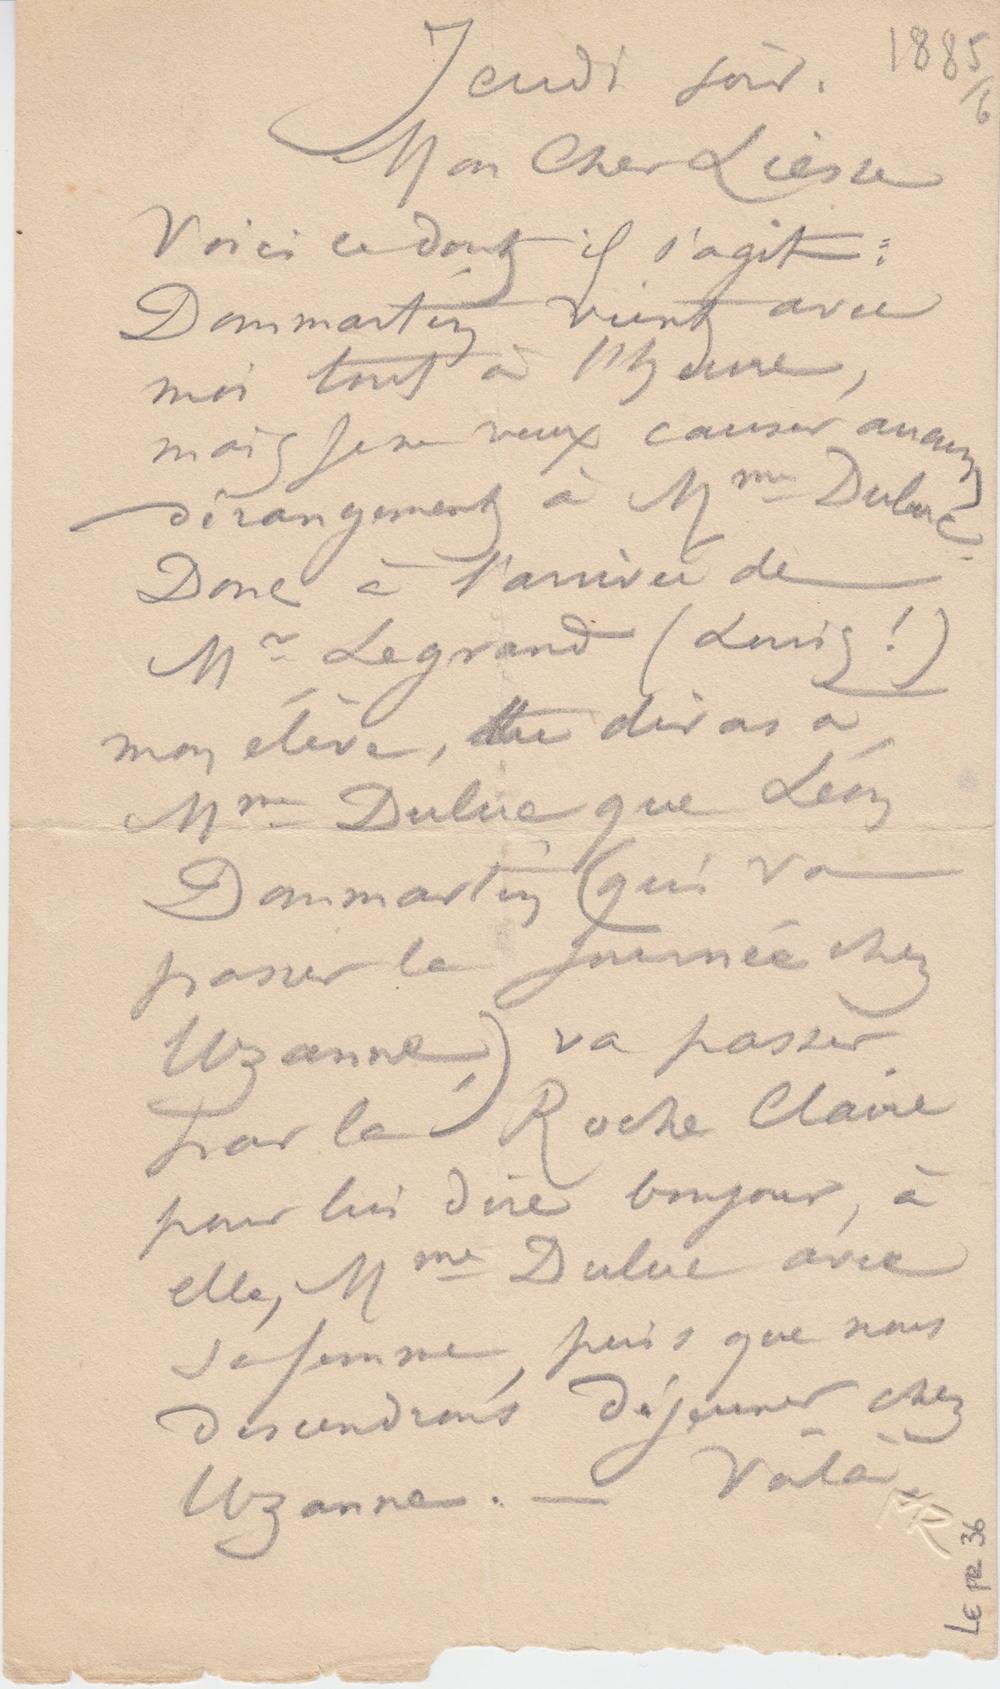 1885/6
Jeudi soir.
Mon Cher Liesse
Voici ce dont il s'agit :
Dommartin vient avec
moi tout à l'heure,
mais je ne veux causer aucun
dérangement à Mme Duluc.
Donc à l'arrivée de
Mr Legrand (Louis !)
mon élève, tu diras à
Mme Duluc que Léon
Dommartin (qui va
passer la journée chez
Uzanne) va passer
par la Roche Claire
pour lui dire bonjour, à
elle, Mme Duluc avec
sa femme, puis que nous
descendrons déjeuner chez
Uzanne. — Voilà.
MR
LEPR 36